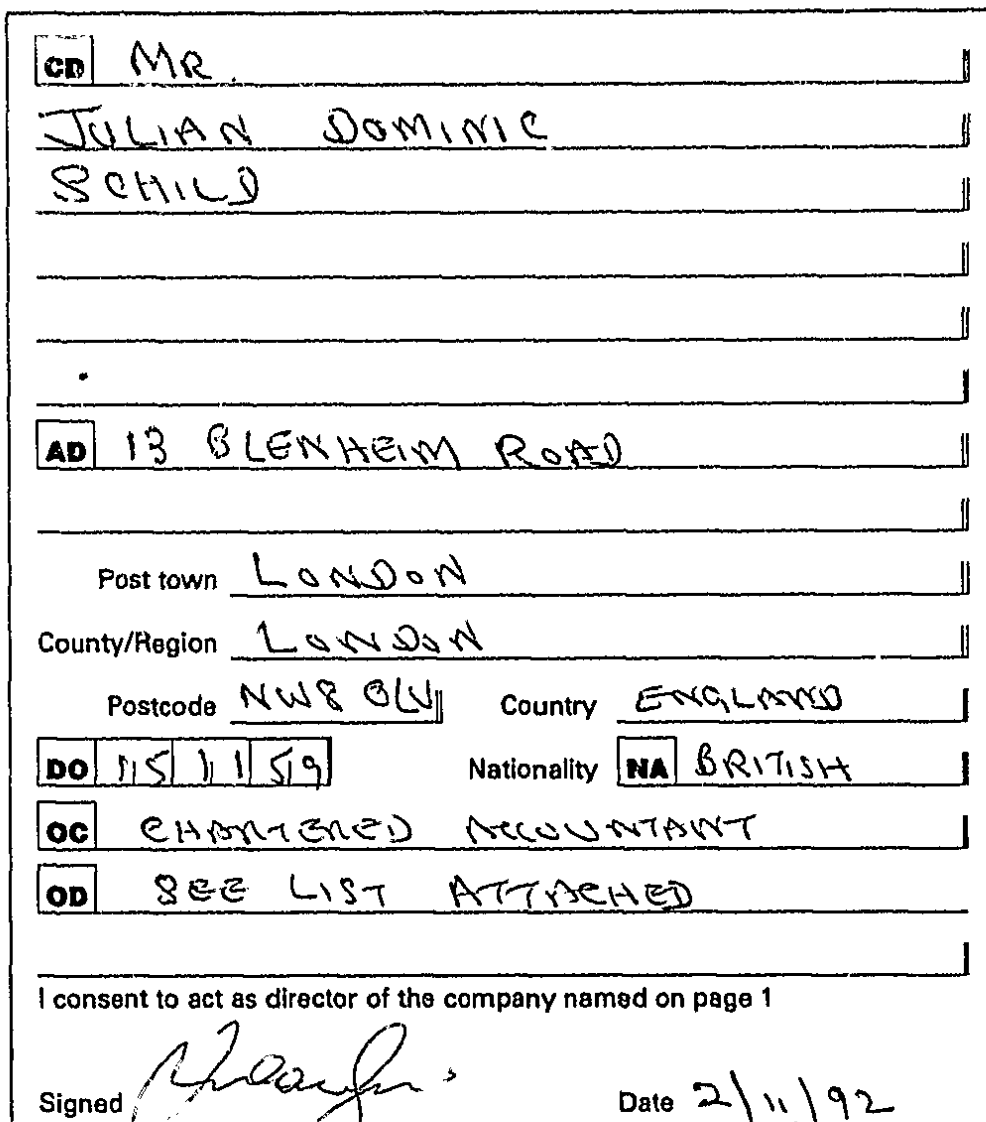 CD MR.
JULIAN DOMINIC
SCHILD
AD 13 BLENHEIM ROAD
Post town LONDON
County/Region LONDON
Postcode NW8 0LU Country ENGLAND
DO 15 11 59 Nationality NA BRITISH
OC CHARTERED ACCOUNTANT
OD SEE LIST ATTACHED
I consent to act as director of the company named on page 1
Signed Date 2/11/92